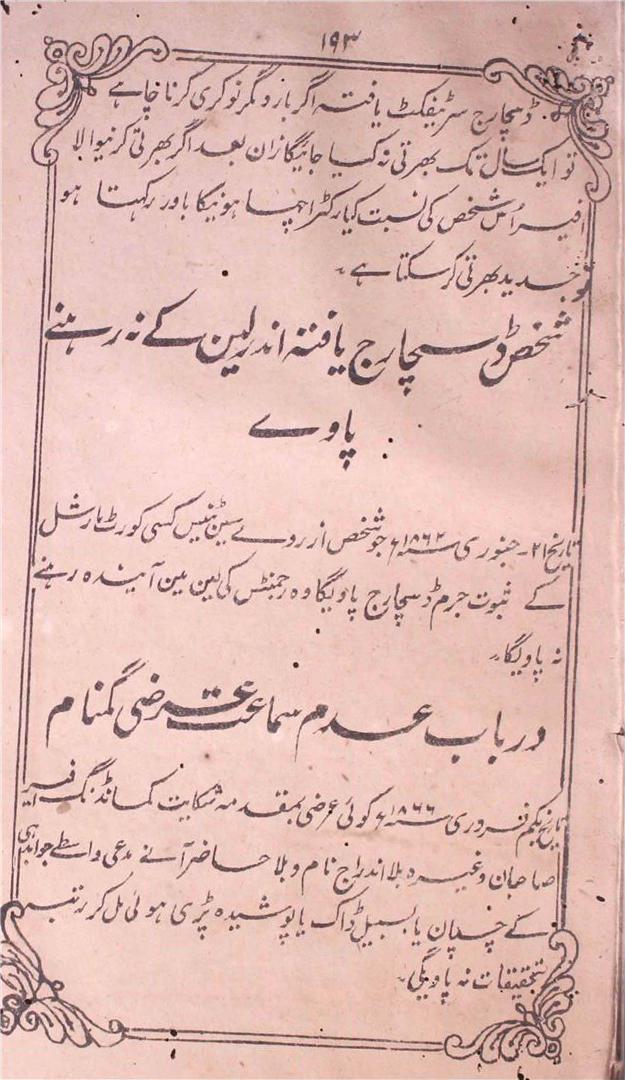 ۱۹۳
ڈسچارج سرٹیفکٹ یافتہ اگر بار دگر نوکری کرنا چاہے
تو ایک سال تک بھرتی نہ کیا جائیگا ازان بعد اگر بھرتی کرنیوالا
افیسر اُس شخص کی نسبت کیارکٹر اچھا ہونیکا باور رکہتا ہو
تو جدید بھرتی کرسکتا ہے۔
شخص ڈسچارج یافتہ اندر لین کے نہ رہنے
پاوے
تاریخ ۲۱۔ جنوری سنہ ۱۸۶۲ء جو شخص از روے سینٹینس کسی کورٹ مارشل
کے ثبوت جرم ڈسچارج پاویگا وہ رجمنٹس کی لین مین آیندہ رہنے
نہ پاویگا۔
در باب عدم سماعت عرضی گمنام
تاریخ یکم فروری سنہ ۱۸۶۶ء کوئی عرضی بمقدمہ شکایت کمانڈنگ افیسر
صاحبان وغیرہ بلا اندراج نام و بلا حاضر آنے مدعی واسطے جوابدہی
کے چسپان یا بسبیل ڈاک یا پوشیدہ پڑی ہوئی مل کر رتبہ
تحقیقات نہ پاویگی۔